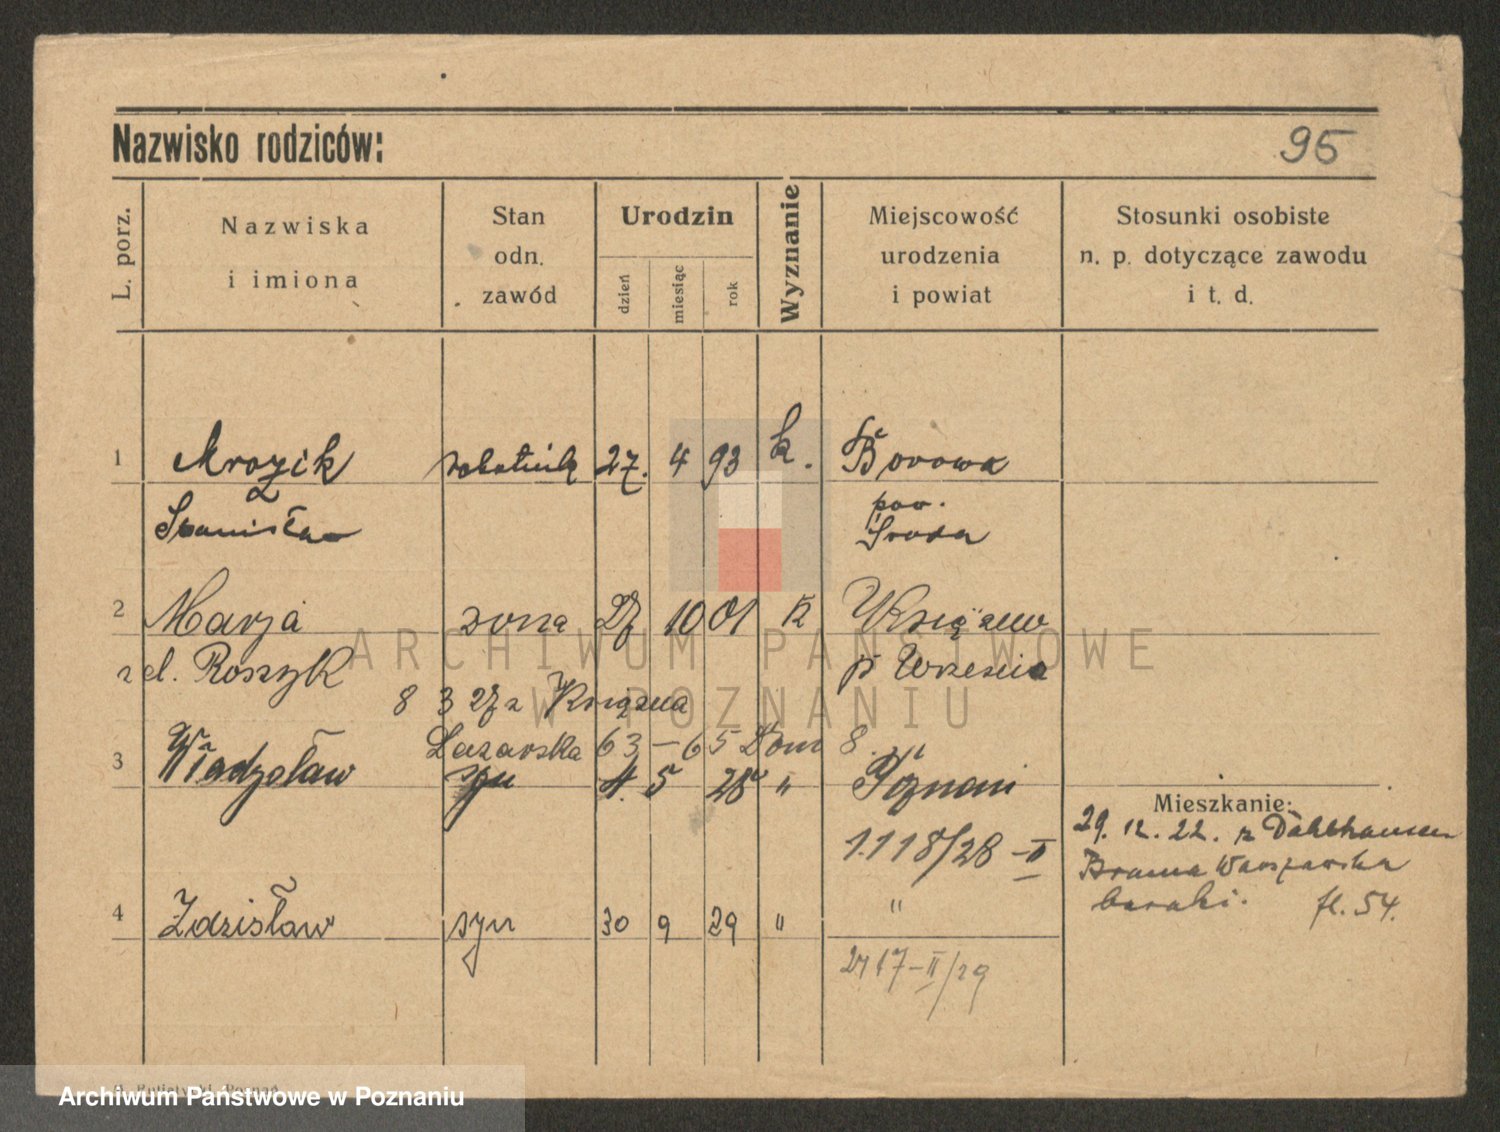 Nazwisko rodziców:
95
L. porz.
Nazwiska
i imiona
Stan
odn.
zawód
Urodzin
dzień
miesiąc
rok
Wyznanie
Miejscowość
urodzenia
i powiat
Stosunki osobiste
n. p. dotyczące zawodu
i t. d.
1 Mrozik robotnik 27. 4 93 k. Borowa
Stanisław pow.
Środa
2 Marja żona 10 01 k
z d. Roszyk p Września
8 3 27 z Książna
Łazarska 63-65 Dom 8.
3 Władysław syn 4. 5 28 " Poznań
Mieszkanie:
29. 12. 22. z Dahlhausen
1118/28-II
Brama Warszawska
baraki. fl. 54.
4 Zdzisław syn 30 9 29 " "
-II/29
ARCHIWUM PAŃSTWOWE
W POZNANIU
Archiwum Państwowe w Poznaniu